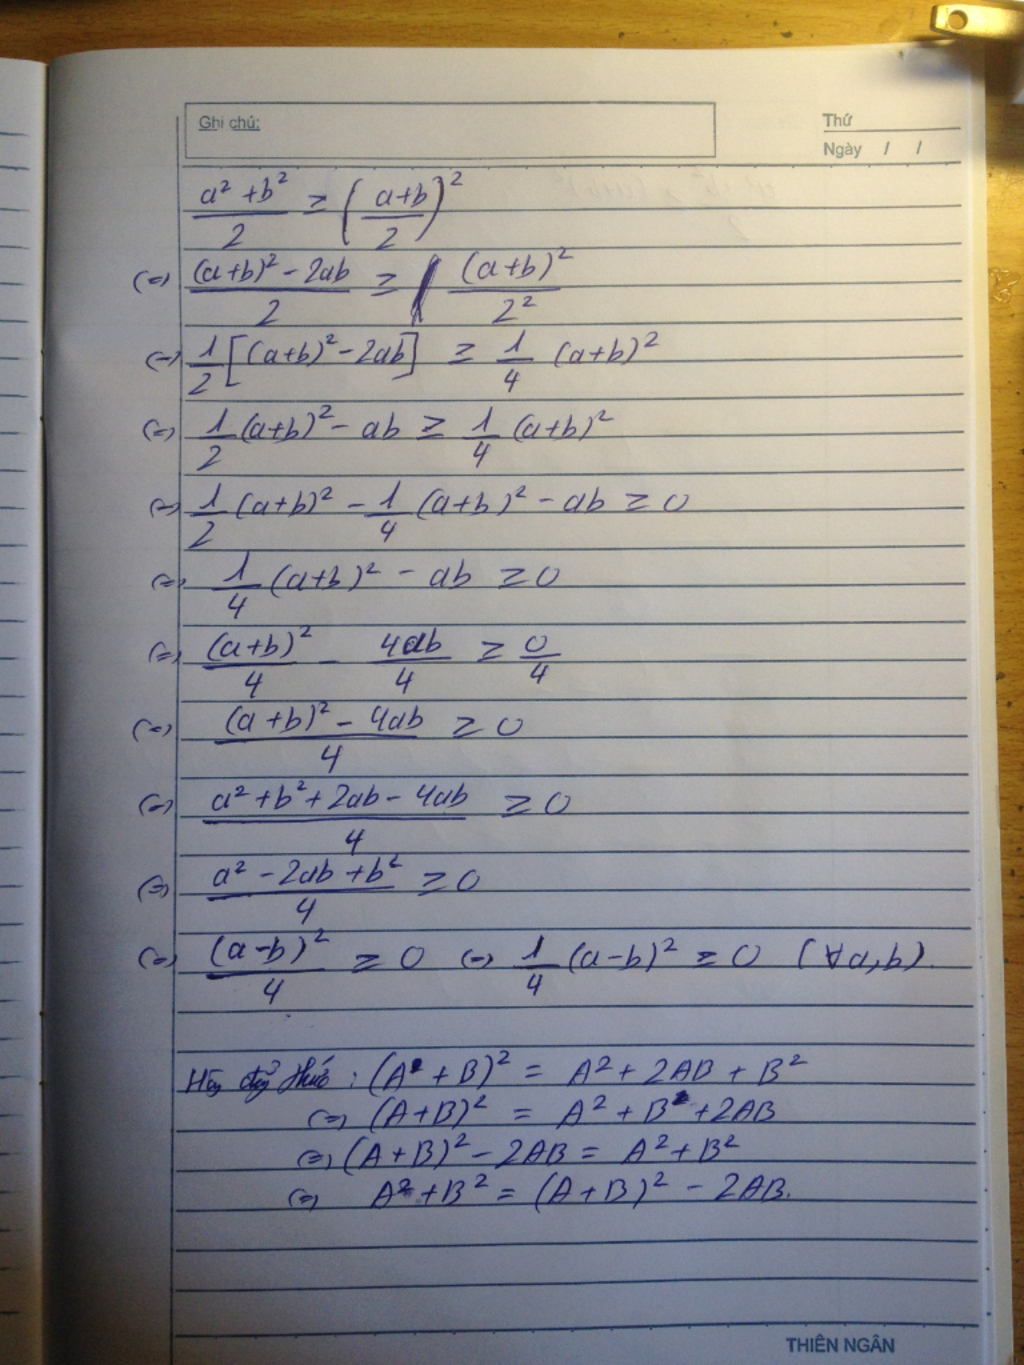 Ghi chú:
Thứ
Ngày / /
(a² + b²)/2 ≥ ((a+b)/2)²
(=) ((a+b)² - 2ab)/2 ≥ (a+b)²/2²
(=) 1/2 [(a+b)² - 2ab] ≥ 1/4 (a+b)²
(=) 1/2 (a+b)² - ab ≥ 1/4 (a+b)²
(=) 1/2 (a+b)² - 1/4 (a+b)² - ab ≥ 0
(=) 1/4 (a+b)² - ab ≥ 0
(=) (a+b)²/4 - 4ab/4 ≥ 0/4
(=) ((a+b)² - 4ab)/4 ≥ 0
(=) (a² + b² + 2ab - 4ab)/4 ≥ 0
(=) (a² - 2ab + b²)/4 ≥ 0
(=) (a-b)²/4 ≥ 0 (=) 1/4 (a-b)² ≥ 0 (∀a,b).
Hằng đẳng thức : (A + B)² = A² + 2AB + B²
(=) (A+B)² = A² + B² + 2AB
(=) (A+B)² - 2AB = A² + B²
(=) A² + B² = (A+B)² - 2AB.
THIÊN NGÂN